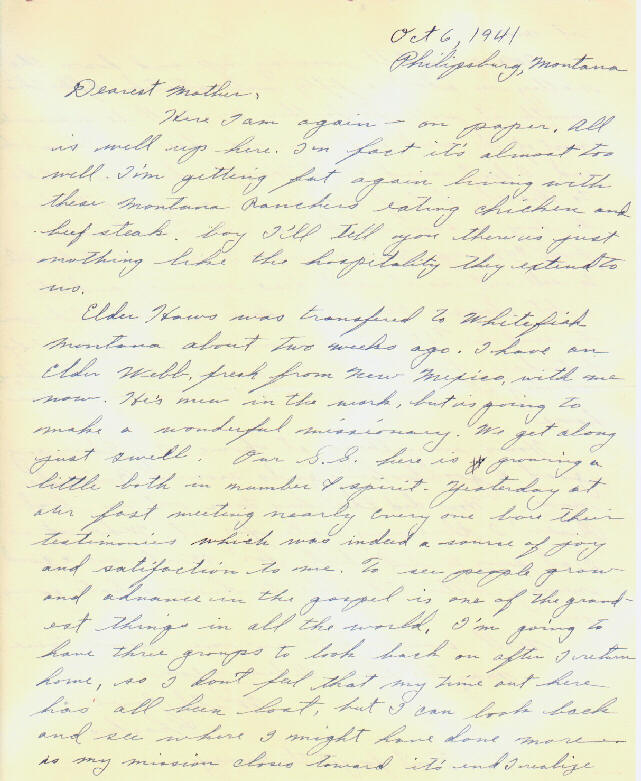 Oct 6, 1941
Philipsburg, Montana
Dearest Mother,
Here I am again - on paper. All
is well up here. I'm fact it's almost too
well. I'm getting fat again living with
these Montana Ranchers eating chicken and
beef steak. Boy I'll tell you there is just
nothing like the hospitality they extend to
us.
Elder Haws was transfered to Whitefish
Montana about two weeks ago. I have an
Elder Webb, fresh from New Mexico, with me
now. He's new in the work, but is going to
make a wonderful missionary. We get along
just swell. Our S.S. here is growing a
little both in number & spirit. Yesterday at
our fast meeting nearly every one bore their
testimonies which was indeed a source of joy
and satifaction to me. To see people grow
and advance in the gospel is one of the grand-
est things in all the world. I'm going to
have three groups to look back on after I return
home, so I don't feel that my time out here
has all been lost, but I can look back
and see where I might have done more
as my mission closes toward it's end I realize